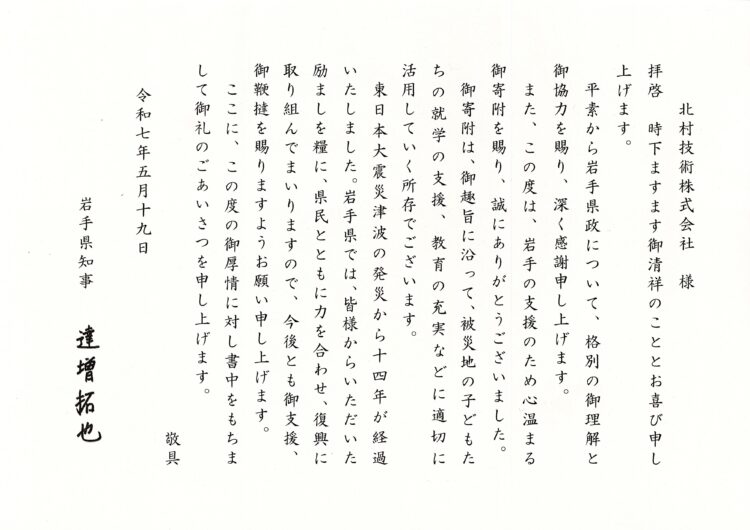 北村技術株式会社　様
拝啓　時下ますます御清祥のこととお喜び申し
上げます。
平素から岩手県政について、格別の御理解と
御協力を賜り、深く感謝申し上げます。
また、この度は、岩手の支援のため心温まる
御寄附を賜り、誠にありがとうございました。
御寄附は、御趣旨に沿って、被災地の子どもた
ちの就学の支援、教育の充実などに適切に
活用していく所存でございます。
東日本大震災津波の発災から十四年が経過
いたしました。岩手県では、皆様からいただいた
励ましを糧に、県民とともに力を合わせ、復興に
取り組んでまいりますので、今後とも御支援、
御鞭撻を賜りますようお願い申し上げます。
ここに、この度の御厚情に対し書中をもちま
して御礼のごあいさつを申し上げます。
敬具
令和七年五月十九日
岩手県知事　達増拓也